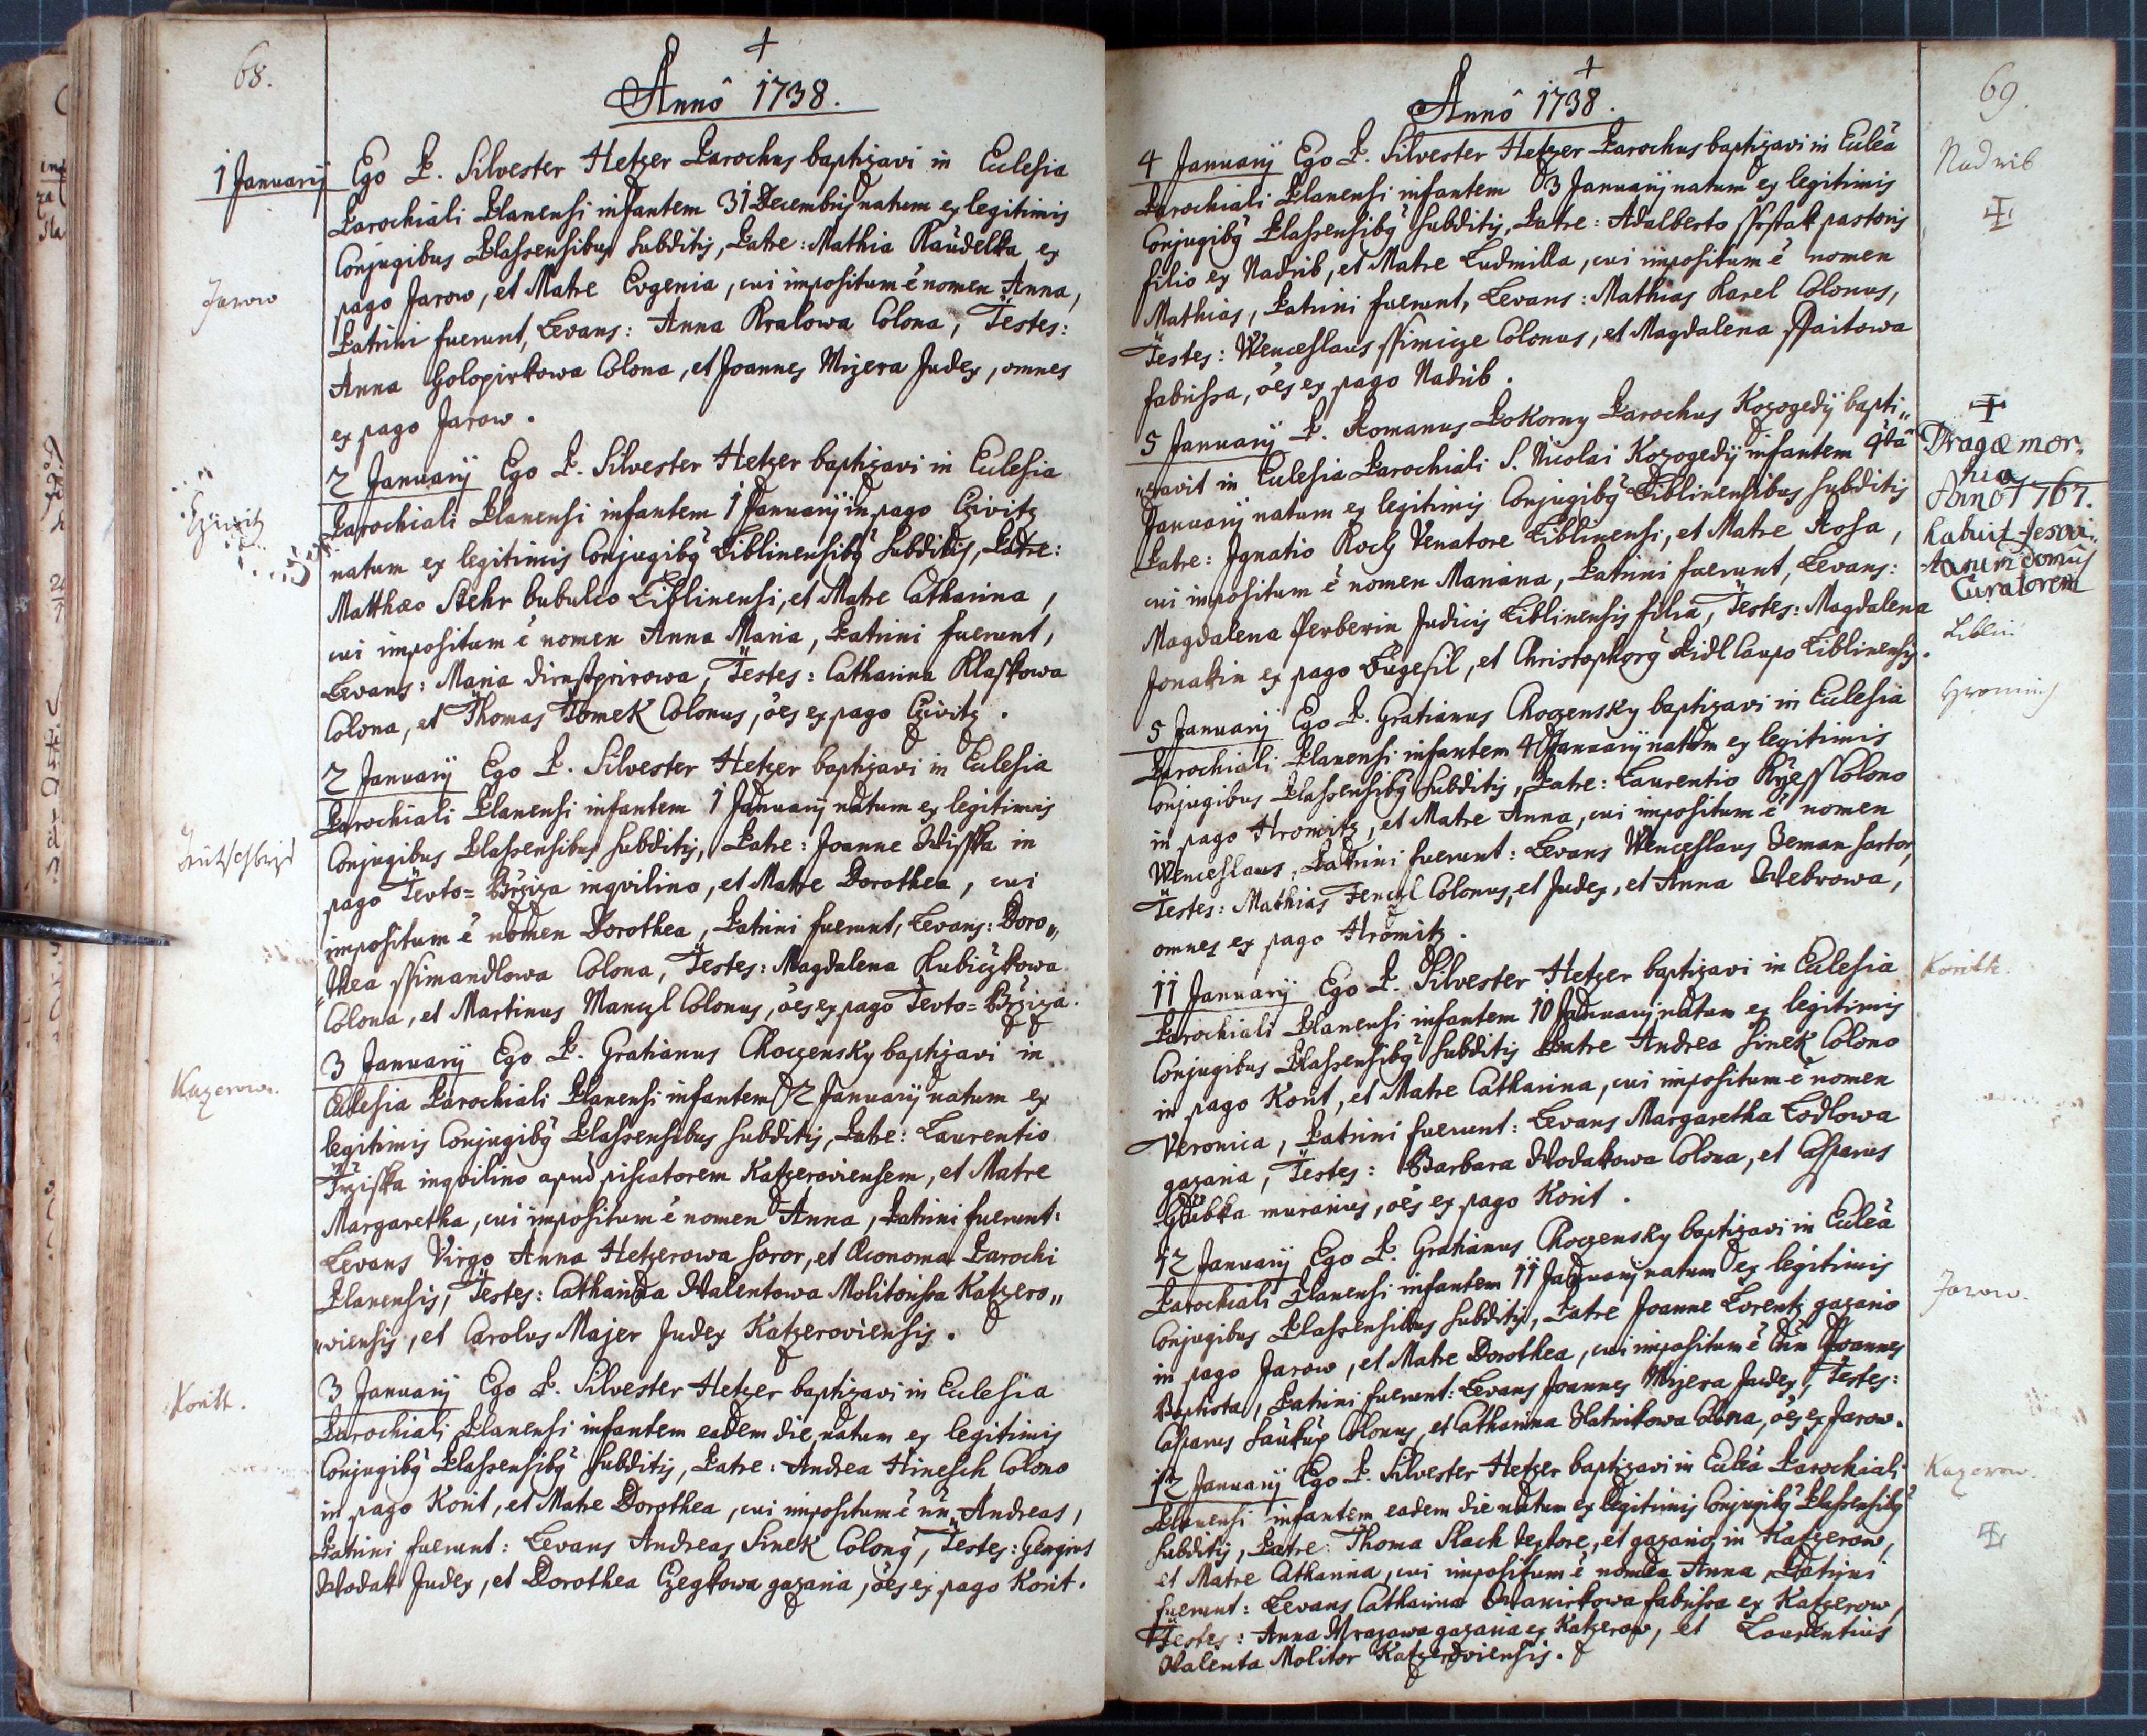 68.
+
Annô 1738.
1 Januarij Ego P. Silvester Hetzer Parochus baptizavi in Eclesia
Parochiali Planensi infantem 31 Decembris natum ex legitimis
Conjugibus Plassensibus subditis, Patre: Mathia Raudelka ex
Jarow
pago Jarow, et Matre Evgenia, cui impositum ē nomen Anna,
Patrini fuerunt, Levans: Anna Kralowa Colona, Testes:
Anna Holopirkowa Colona, et Joannes Mizera Judex, omnes
ex pago Jarow.
2 Januarij Ego P. Silvester Hetzer baptizavi in Eclesia
Parochiali Planensi infantem 1 Januarij in pago Czivitz
natum ex legitimis Conjugibꝰ Liblinensibꝰ subditis, Patre:
Matthæo Stehr bubulco Liblinensi, et Matre Catharina,
cui impositum ē nomen Anna Maria, Patrini fuerunt,
Levans: Maria Testes: Catharina Klaskowa
Colona, et Thomas Tomek Colonus, ōes ex pago Czivitz.
2 Januarij Ego P. Silvester Hetzer baptizavi in Eclesia
Parochiali Planensi infantem 1 Januarij natum ex legitimis
Conjugibus Plassensibus subditis, Patre: Joanne Wisska in
pago Tevto=Brziza inqvilino, et Matre Dorothea, cui
impositum ē nomen Dorothea, Patrini fuerunt, Levans: Doro„
„thea Ssimandlowa Colona, Testes: Magdalena Kubiczkowa
Colona, et Martinus Manczl Colonus, ōes ex pago Tevto=Brziza.
3 Januarij Ego P. Gratianus Choczensky baptizavi in
Kazerow.
Eclesia Parochiali Planensi infantem 2 Januarij natum ex
legitimis Conjugibꝰ Plassensibus subditis, Patre: Laurentio
Trziska inqvilino apud piscatorem Katzeroviensem, et Matre
Margaretha, cui impositum ē nomen Anna, Patrini fuerunt:
Levans Virgo Anna Hetzerowa soror, et Œconoma Parochi
Planensis, Testes: Catharina Walentowa Molitorissa Katzero„
„viensis, et Carolus Majer Judex Katzeroviensis.
3 Januarij Ego P. Silvester Hetzer baptizavi in Eclesia
Koritt.
Parochiali Planensi infantem eadem die natum ex legitimis
Conjugibꝰ Plassensibꝰ subditis, Patre: Andrea Hinesch Colono
in pago Korit, et Matre Dorothea, cui impositum ē nn̄ Andreas,
Patrini fuerunt: Levans Andreas Sinek Colonꝰ, Testes: Georgius
Wodak Judex, et Dorothea Czegkowa gazaria, ōes ex pago Korit.
69.
+
Annô 1738.
4 Januarij Ego P. Silvester Hetzer Parochus baptizavi in Ecleā
Nadrib
Parochiali Planensi infantem 3 Januarij natum ex legitimis
Conjugibꝰ Plassensibꝰ subditis, Patre: Adalberto pastoris
filio ex Nadrib, et Matre Ludmilla, cui impositum ē nomen
Mathias, Patrini fuerunt, Levans: Mathias Karel Colonus,
Testes: Wenceslaus Ssimicze Colonus, et Magdalena Ssaitowa
fabrissa, ōes ex pago Nadrib.
5 Januarij P. Romanus Pokorny Parochus Kozogedij bapti„
„zavit in Eclesia Parochiali S. Nicolai Kozogedij infantem 4tâ
Januarij natum ex legitimis Conjugibꝰ Liblinensibus subditis
Patre: Ignatio Koch Venatore Liblinensi, et Matre Rosa,
cui impositum ē nomen Mariana, Patrini fuerunt, Levans:
Magdalena Ferberin Judicis Liblinensis filia, Testes: Magdalena
Jonakin ex pago Bugesil, et Christophorꝰ Pidl Caupo Liblinensis.
+
Dragæ mor„
hia
Anno 1767.
habuit Jesui„
tarum domus
Curatorem
Liblin
Hromitz
5 Januarij Ego P. Gratianus Choczensky baptizavi in Eclesia
Parochiali Planensi infantem 4 Januarij natum ex legitimis
Conjugibus Plassensibꝰ subditis, Patre: Laurentio Rÿess Colono
in pago Hromitz, et Matre Anna, cui impositum ē nomen
Wenceslaus, Patrini fuerunt: Levans Wenceslaus Zeman sartor,
Testes: Mathias Fenczl Colonus, et Judex, et Anna Webrowa,
omnes ex pago Hromitz.
11 Januarij Ego P. Silvester Hetzer baptizavi in Eclesia
Koritt.
Parochiali Planensi infantem 10 Januarij natum ex legitimis
Conjugibus Plassensibꝰ subditis Patre Andrea Sinek Colono
in pago Korit, et Matre Catharina, cui impositum ē nomen
Veronica, Patrini fuerunt: Levans Margaretha Lodlowa
gazaria, Testes: Barbara Wodakowa Colona, et Casparus
Haubka murarius, ōes ex pago Korit.
12 Januarij Ego P. Gratianus Choczensky baptizavi in Ecleā
Jarow.
Parochiali Planensi infantem 11 Januarij natum ex legitimis
Conjugibus Plassensibus subditis, Patre Joanne Lorentz gazario
in pago Jarow, et Matre Dorothea, cui impositum ē nn̄ Joannes
Baptista, Patrini fuerunt: Levans Joannes Mizera Judex, Testes:
Casparus Saukup Colonus, et Catharina Slatnikowa Colona, ōes ex Jarow.
12 Januarij Ego P. Silvester Hetzer baptizavi in Ecleā Parochiali
Kazerow.
Planensi infantem eadem die natum ex legitimis Conjugibꝰ Plassensibꝰ
subditis, Patre: Thoma Slach textore, et gazario in Katzerow,
et Matre Catharina, cui impositum ē nomen Anna, Patrini
fuerunt: Levans Catharina Wawirkowa fabrissa ex Katzerow,
Testes: Anna Mrazowa gazaria ex Katzerow, et Laurentius
Walenta Molitor Katzeroviensis.